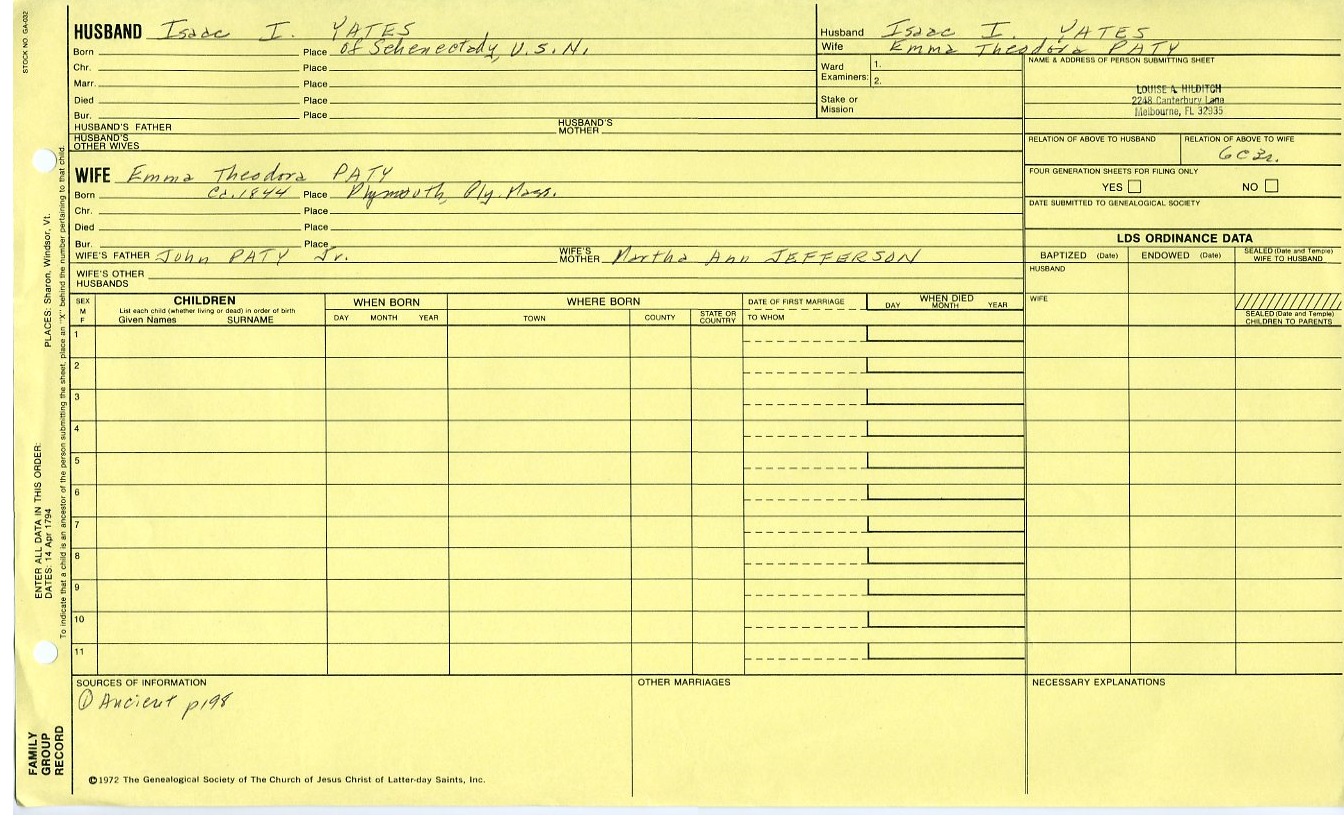 STOCK NO. GA-032
HUSBAND Isaac I. YATES
Born Place of Schenectady, U.S.N.
Chr. Place
Marr. Place
Died Place
Bur. Place
HUSBAND'S FATHER HUSBAND'S MOTHER
HUSBAND'S OTHER WIVES
Husband Isaac I. YATES
Wife Emma Theodora PATY
Ward Examiners: 1.
2.
Stake or Mission
NAME & ADDRESS OF PERSON SUBMITTING SHEET
LOUISE A. HILDITCH
2248 Canterbury Lane
Melbourne, FL 32935
RELATION OF ABOVE TO HUSBAND RELATION OF ABOVE TO WIFE
6C3r.
FOUR GENERATION SHEETS FOR FILING ONLY
YES NO
DATE SUBMITTED TO GENEALOGICAL SOCIETY
WIFE Emma Theodora PATY
Born Ca.1844 Place Plymouth, Ply. Mass.
Chr. Place
Died Place
Bur. Place
WIFE'S FATHER John PATY Jr. WIFE'S MOTHER Martha Ann JEFFERSON
WIFE'S OTHER HUSBANDS
LDS ORDINANCE DATA
BAPTIZED (Date) ENDOWED (Date) SEALED (Date and Temple) WIFE TO HUSBAND
HUSBAND
WIFE
SEALED (Date and Temple) CHILDREN TO PARENTS
SEX M F
CHILDREN
List each child (whether living or dead) in order of birth
Given Names SURNAME
WHEN BORN
DAY MONTH YEAR
WHERE BORN
TOWN COUNTY STATE OR COUNTRY
DATE OF FIRST MARRIAGE
TO WHOM
WHEN DIED
DAY MONTH YEAR
1
2
3
4
5
6
7
8
9
10
11
SOURCES OF INFORMATION
① Ancient p198
OTHER MARRIAGES
NECESSARY EXPLANATIONS
©1972 The Genealogical Society of The Church of Jesus Christ of Latter-day Saints, Inc.
FAMILY GROUP RECORD
ENTER ALL DATA IN THIS ORDER:
DATES: 14 Apr 1794
PLACES: Sharon, Windsor, Vt.
To indicate that a child is an ancestor of the person submitting the sheet, place an "X" behind the number pertaining to that child.